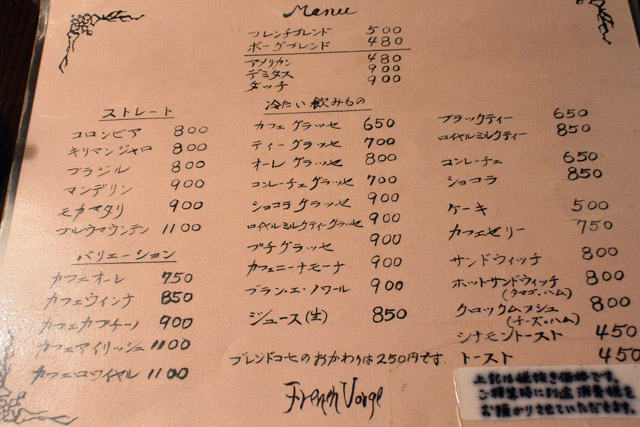 Menu
フレンチブレンド 500
ボーグブレンド 480
アメリカン 480
デミタス 900
ダッチ 900
ストレート
コロンビア 800
キリマンジャロ 800
ブラジル 800
マンデリン 900
モカマタリ 900
ブルウマウンテン 1100
バリエーション
カフェオーレ 750
カフェウィンナ 850
カフェカプチーノ 900
カフェアイリッシュ 1100
カフェロワイヤル 1100
冷たい飲みもの
カフェグラッセ 650
ティーグラッセ 700
オーレグラッセ 800
コンレーチェグラッセ 700
ショコラグラッセ 900
ロイヤルミルクティーグラッセ 900
プチグラッセ 900
カフェニーナモーナ 900
ブラン・エ・ノワール 900
ジュース(生) 850
ブレンドコーヒのおかわりは250円です.
ブラックティー 650
ロイヤルミルクティー 850
コンレーチェ 650
ショコラ 850
ケーキ 500
カフェゼリー 750
サンドウィッチ 800
ホットサンドウィッチ 800
(タマゴ・ハム)
クロックムッシュ 800
(チーズ・ハム)
シナモントースト 450
トースト 450
French Vorge
上記は税抜き価格です。
ご精算時に別途消費税を
お預かりさせていただきます。